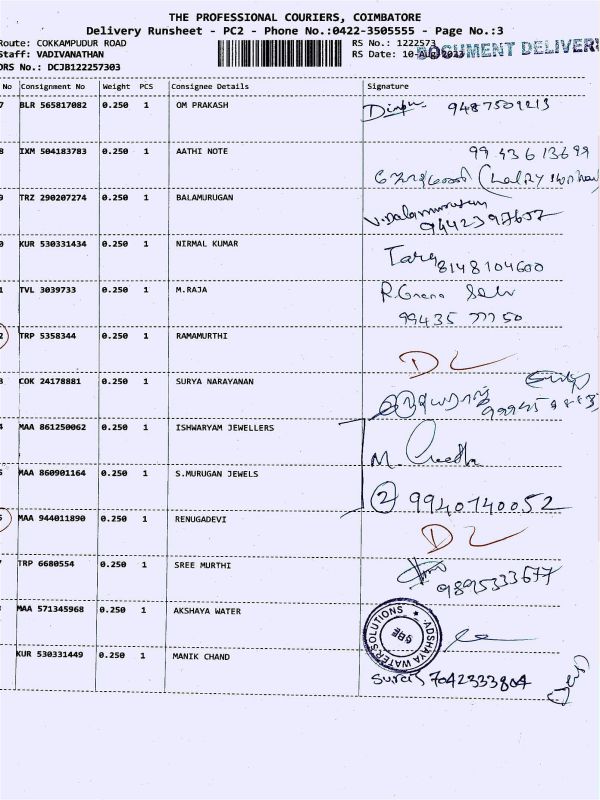 THE PROFESSIONAL COURIERS, COIMBATORE
Delivery Runsheet - PC2 - Phone No.:0422-3505555 - Page No.:3
Route: COKKAMPUDUR ROAD RS No.: 1222573
Staff: VADIVANATHAN RS Date: 10-Aug-2023 DOCUMENT DELIVER
DRS No.: DCJB122257303
No Consignment No Weight PCS Consignee Details Signature
7 BLR 565817082 0.250 1 OM PRAKASH 9487501213
8 IXM 504183783 0.250 1 AATHI NOTE 99 43 6 13699
TRZ 290207274 0.250 1 BALAMURUGAN V. Balamurugan
9442397637
0 KUR 530331434 0.250 1 NIRMAL KUMAR Tara
8148104600
1 TVL 3039733 0.250 1 M.RAJA R. Gnana Selv
99435 77750
2 TRP 5358344 0.250 1 RAMAMURTHI DL
3 COK 24178881 0.250 1 SURYA NARAYANAN
4 MAA 861250062 0.250 1 ISHWARYAM JEWELLERS
M. Geetha
5 MAA 860901164 0.250 1 S.MURUGAN JEWELS
2 9940740052
MAA 944011890 0.250 1 RENUGADEVI DL
TRP 6680554 0.250 1 SREE MURTHI
9895333677
MAA 571345968 0.250 1 AKSHAYA WATER
ADSHAYA WATER SOLUTIONS
CBE
KUR 530331449 0.250 1 MANIK CHAND
Suresh 7042333804